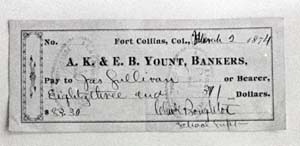 No. Fort Collins, Col., March 2 1874
A. K. & E. B. YOUNT, BANKERS,
Pay to Jas Sullivan or Bearer,
Eighty three and 30/ Dollars.
$83.30
School Supt